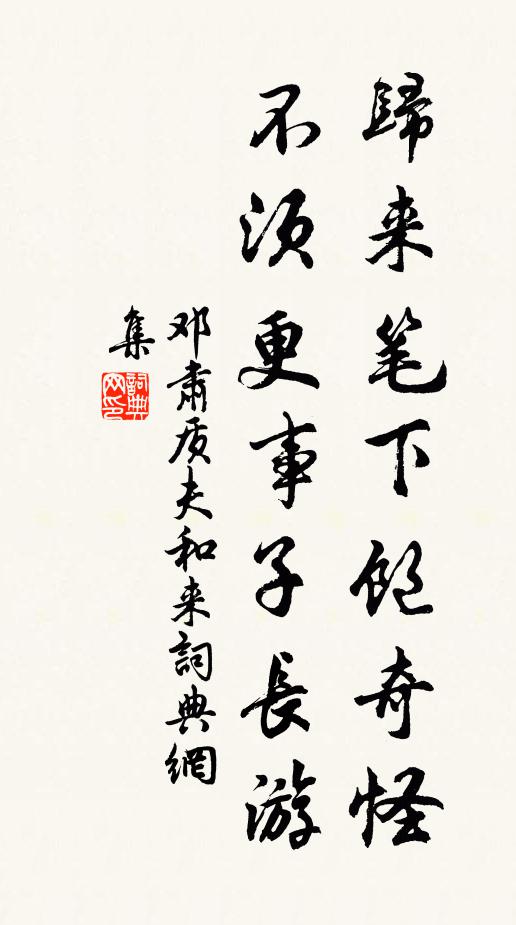 歸来笔下飽奇怪
不须更事子長游
邓肅质夫和来詞典網
集
詞典网印